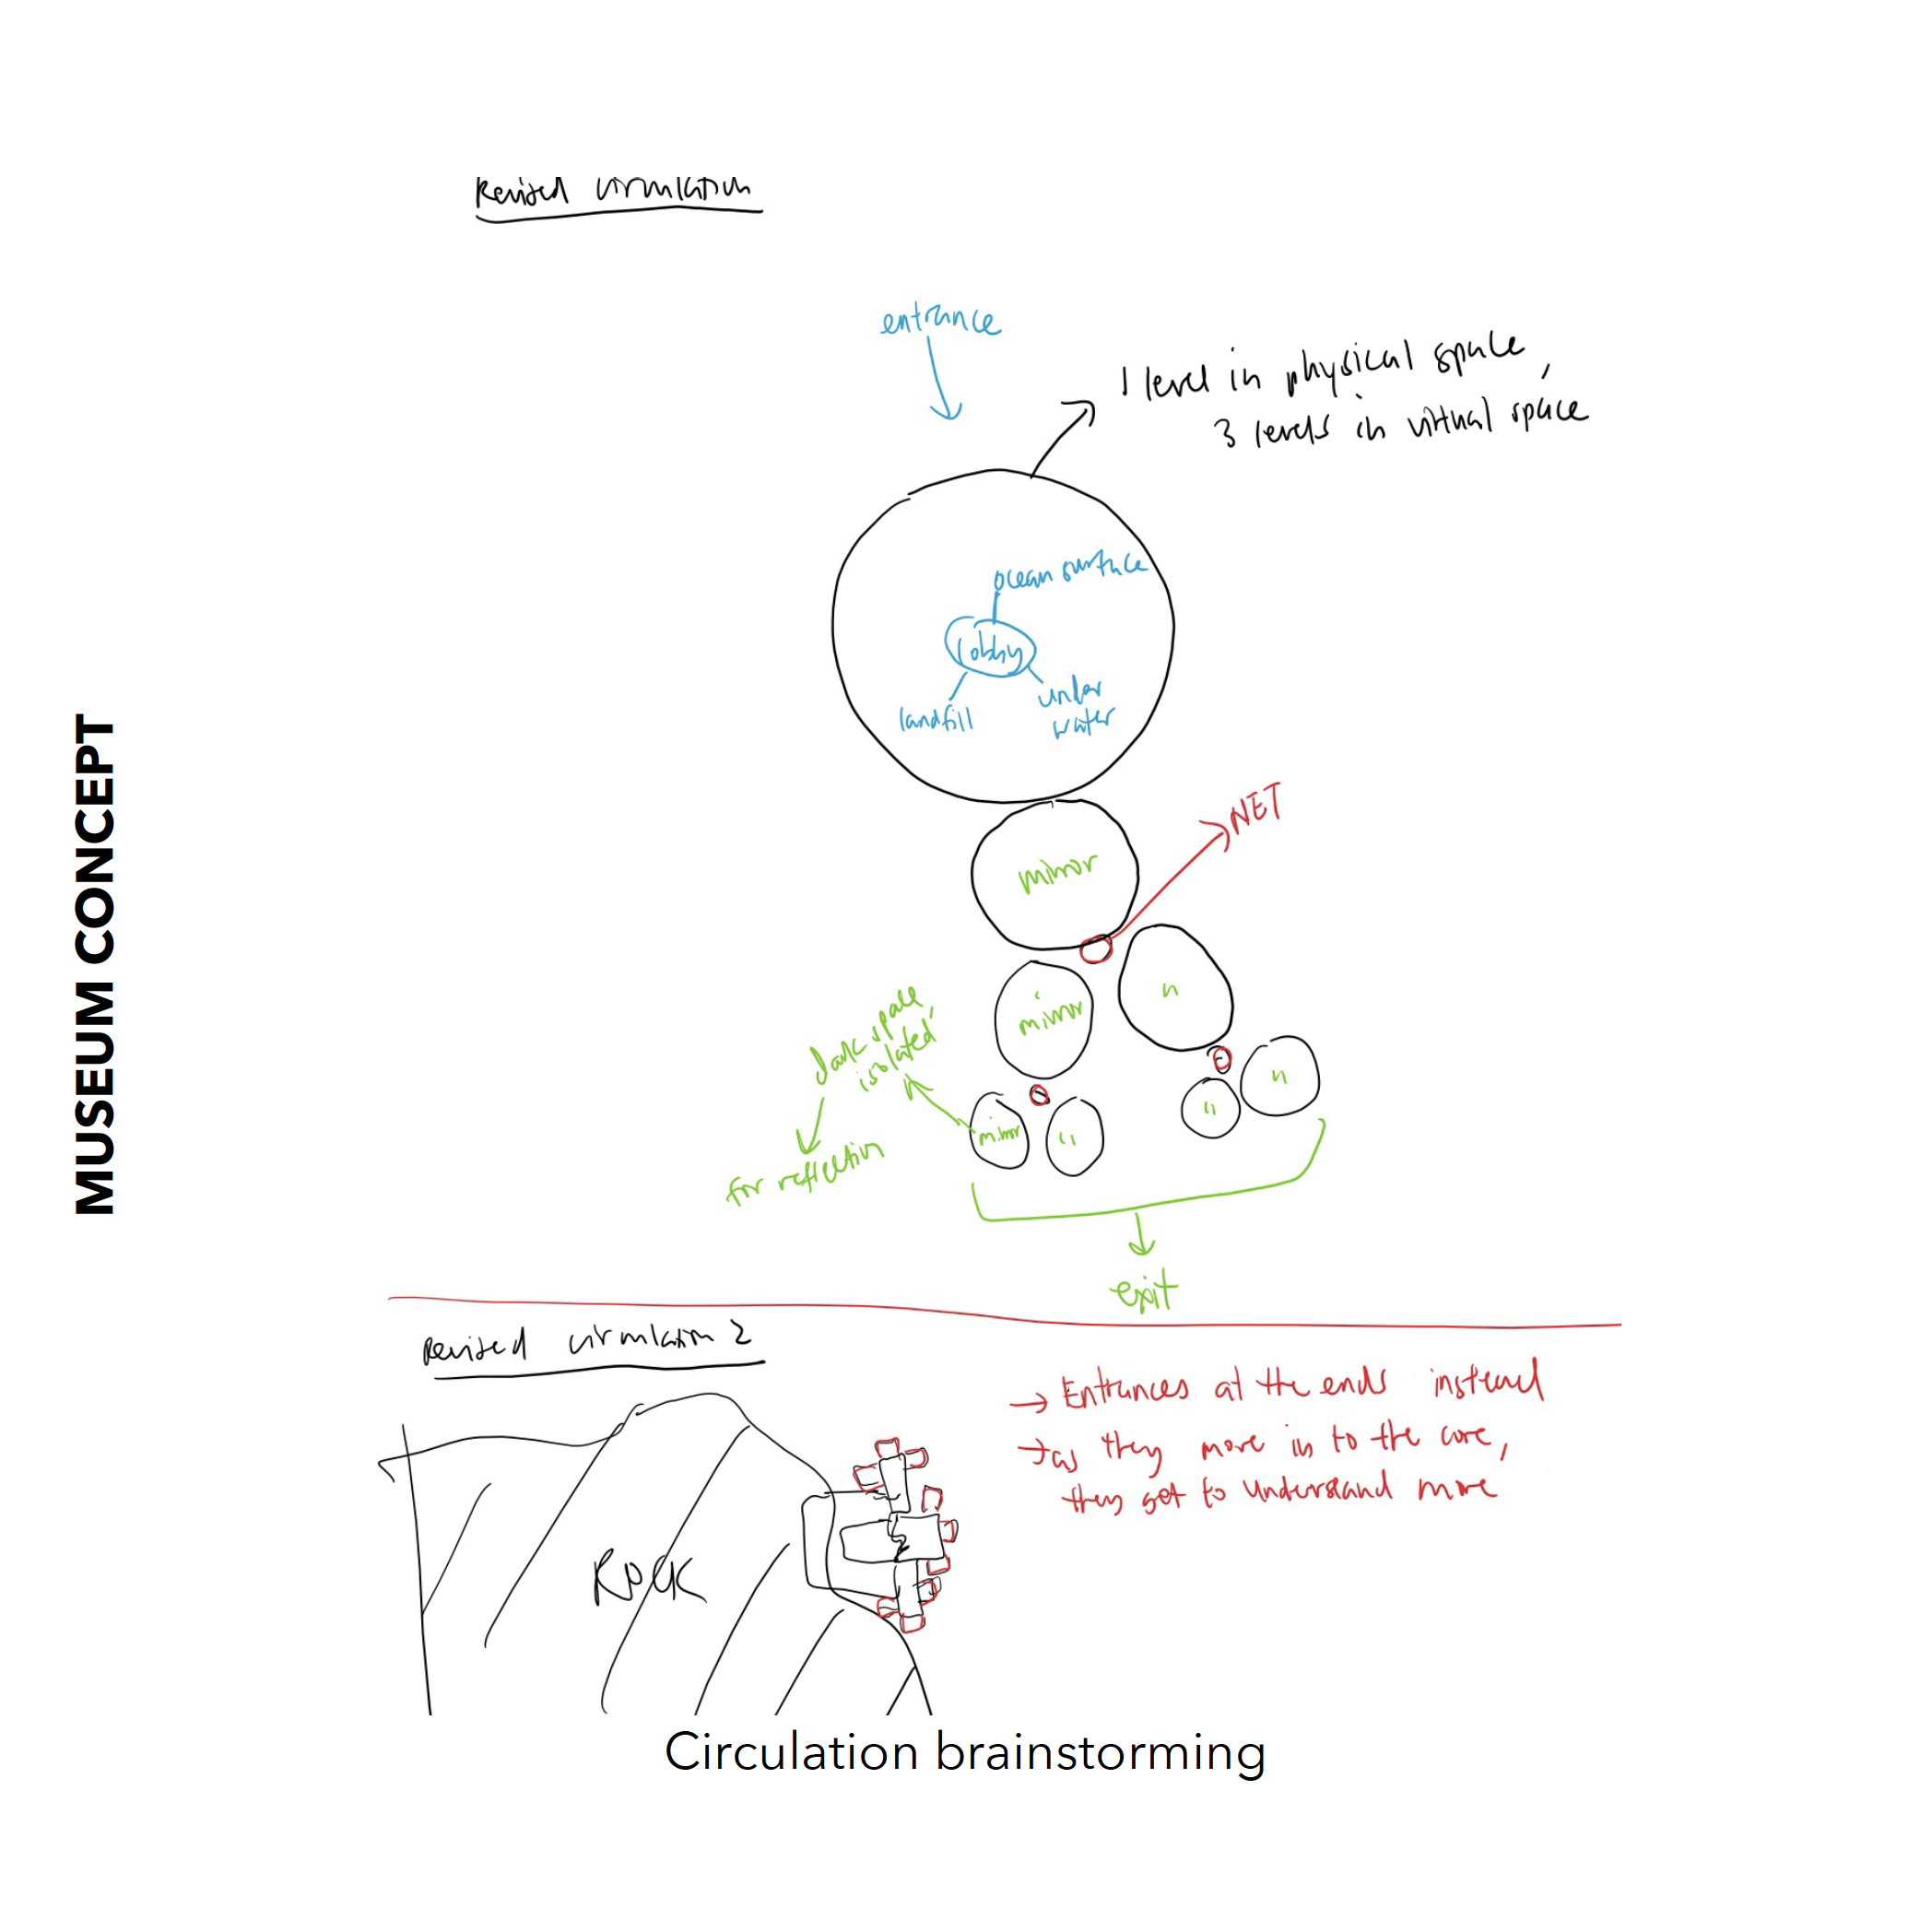 MUSEUM CONCEPT
Revised circulation
entrance
1 level in physical space,
3 levels in virtual space
ocean surface
lobby
landfill
under
water
NET
mirror
mirror
"
Dark space,
isolated
for reflection
mirror
"
"
"
exit
Revised circulation 2
→ Entrances at the ends instead
→ as they move in to the core,
they get to understand more
ROCK
Circulation brainstorming